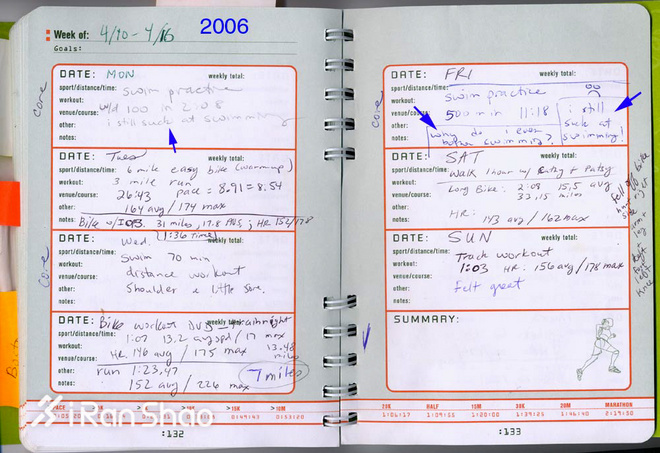 Week of: 4/10 - 4/16
2006
Goals:
DATE: MON weekly total:
sport/distance/time: swim practice
workout: w/d 100 in 2:08
venue/course: i still suck at swimming
other:
notes:
core
DATE: Tues weekly total:
sport/distance/time: 6 mile easy bike (warmup)
workout: 3 mile run
venue/course: 26:43 pace = 8.91 = 8:54
other: 164 avg / 174 max
notes: Bike 31 miles, 17.8 AVG, HR 152/178
(1:36 time)
DATE: Wed. weekly total:
sport/distance/time: Swim 70 min
workout: distance workout
venue/course: Shoulder a little sore.
other:
notes:
core
DATE: Bike workout DVD - trainright
weekly total:
sport/distance/time: 1:07 13.2 avg spd / 17 max
workout: HR 146 avg / 175 max 13.48 miles
venue/course:
other: run 1:23.47
notes: 152 avg / 226 max
7 miles
PACE >10K 10M
1:05:20 0:49:43 0:53:20
iRanShao
:132
DATE: FRI weekly total:
sport/distance/time: swim practice
workout: 500 min 11:18
venue/course:
other: why do i even bother swimming?
notes:
i still suck at swimming!
core
DATE: SAT weekly total:
sport/distance/time: Walk 1 hour w/ Catzy + Patsy
workout: Long Bike: 2:08 15.5 avg
venue/course: 33.15 miles
other: HR: 143 avg / 162 max
notes:
fell off bike
left leg +
left knee
DATE: SUN weekly total:
sport/distance/time: Track workout
workout: 1:03 HR: 156 avg / 178 max
venue/course:
other: Felt great
notes:
SUMMARY:
20K HALF 15M 30K 20M MARATHON
1:06:17 1:09:55 1:20:00 1:39:25 1:46:40 2:19:50
:133